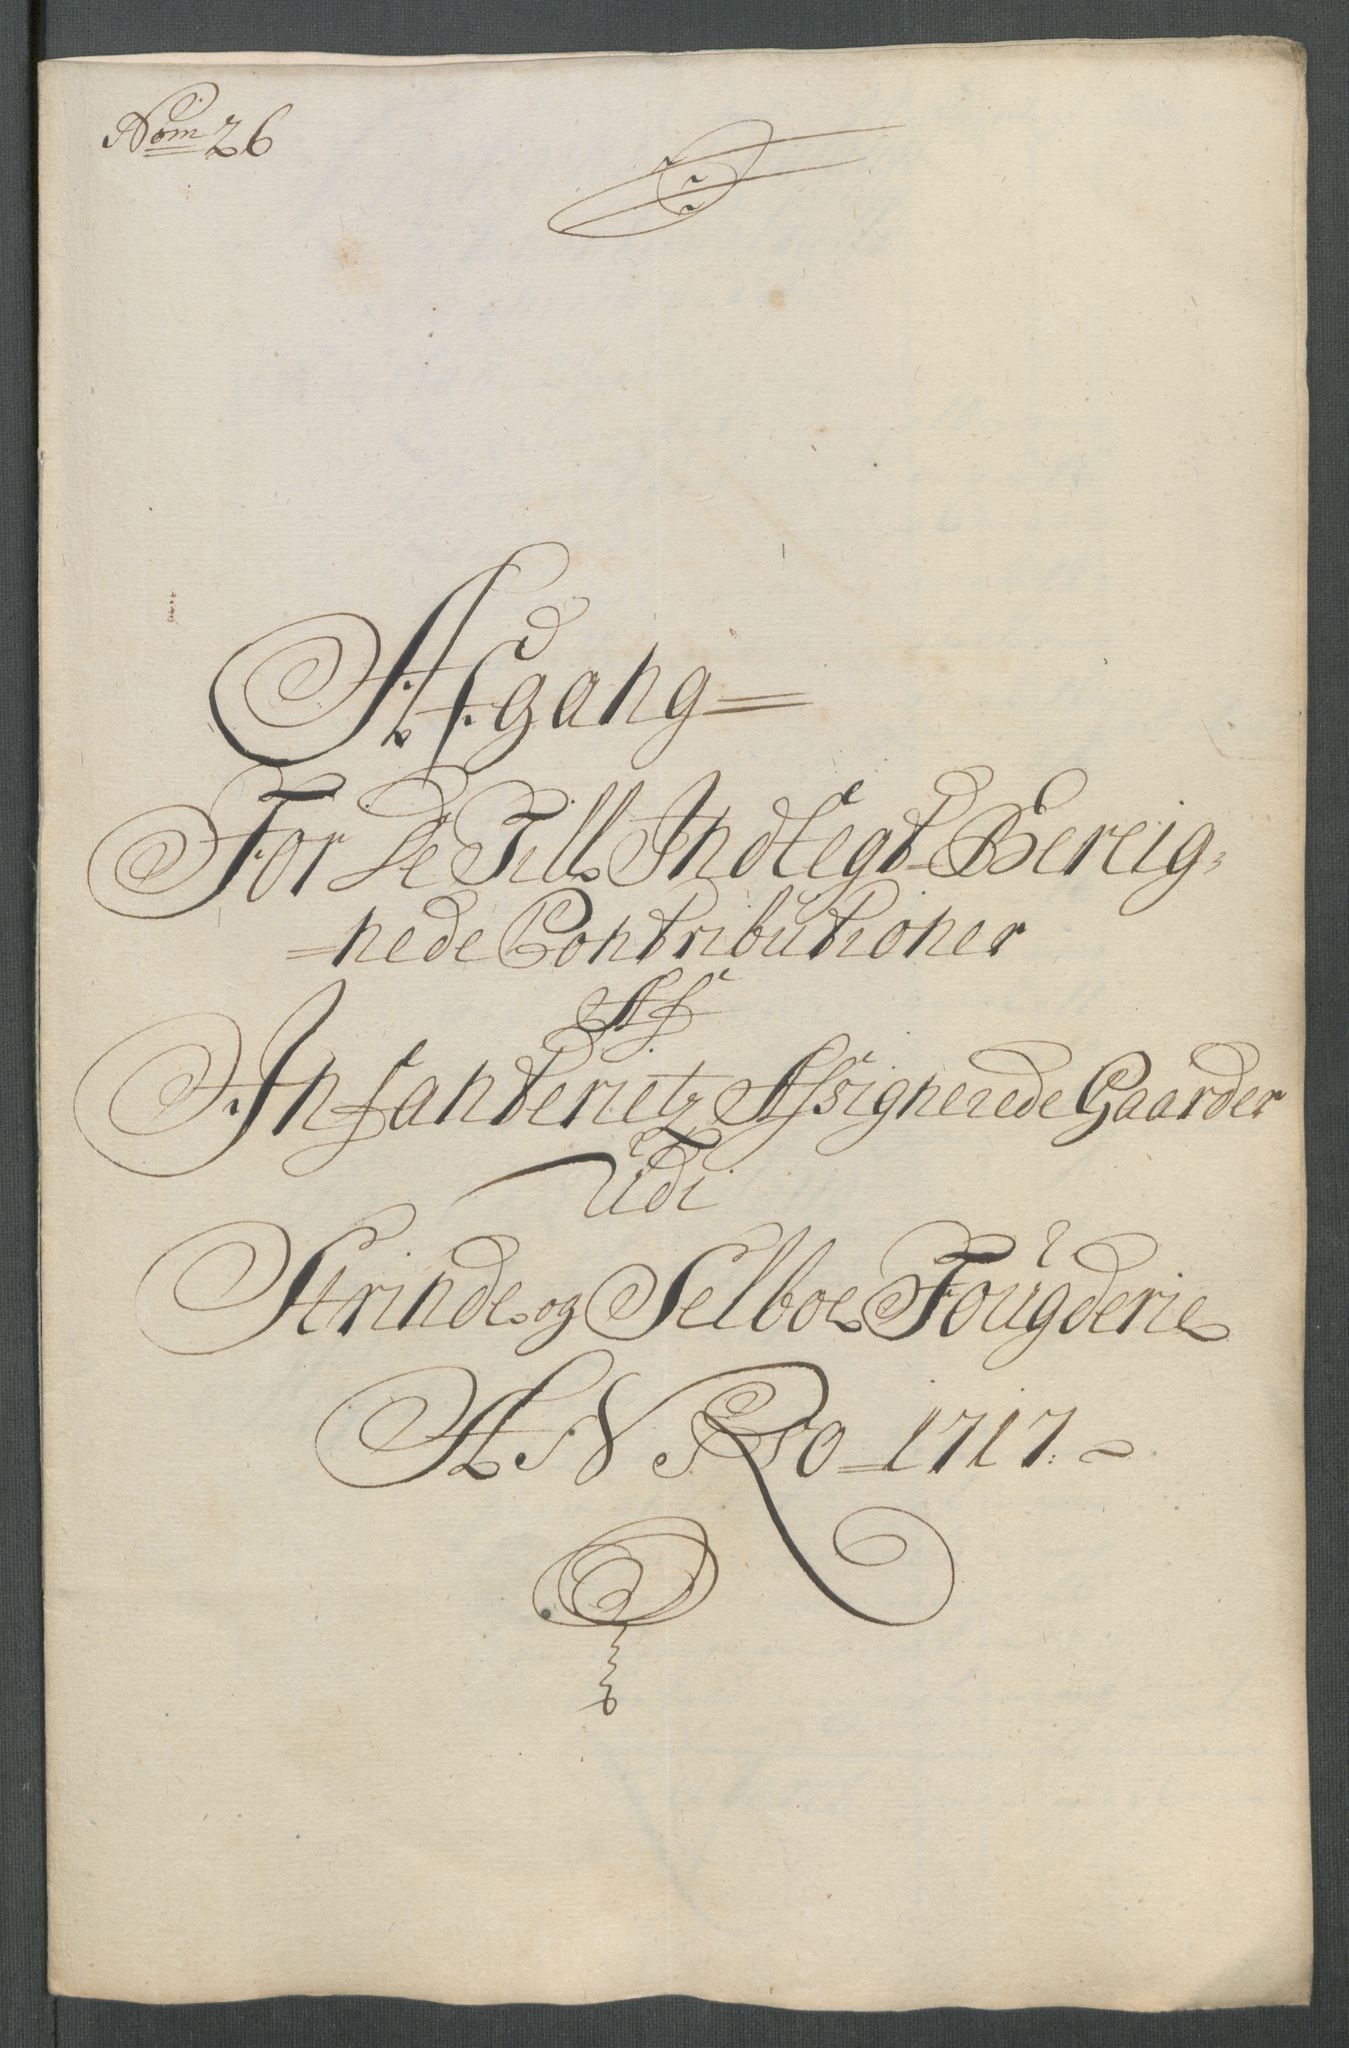 Nom 26
Afgang
For de Till Indtegt Bereig-
nede Contributioner
Af
Infanterietz Assignerede Gaarder
Udi
Strinde og Selboe Fougderie
ANNO 1717